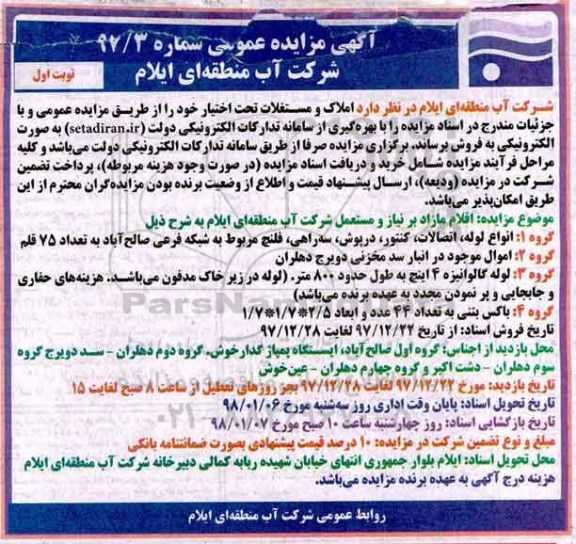 آگهی مزایده عمومی شماره ۹۷/۳
شرکت آب منطقه‌ای ایلام
نوبت اول
شرکت آب منطقه‌ای ایلام در نظر دارد املاک و مستغلات تحت اختیار خود را از طریق مزایده عمومی و با
جزئیات مندرج در اسناد مزایده را با بهره‌گیری از سامانه تدارکات الکترونیکی دولت (setadiran.ir) به صورت
الکترونیکی به فروش برساند. برگزاری مزایده صرفا از طریق سامانه تدارکات الکترونیکی دولت می‌باشد و کلیه
مراحل فرآیند مزایده شامل خرید و دریافت اسناد مزایده (در صورت وجود هزینه مربوطه)، پرداخت تضمین
شرکت در مزایده (ودیعه)، ارسال پیشنهاد قیمت و اطلاع از وضعیت برنده بودن مزایده‌گران محترم از این
طریق امکان‌پذیر می‌باشد.
موضوع مزایده: اقلام مازاد بر نیاز و مستعمل شرکت آب منطقه‌ای ایلام به شرح ذیل
گروه ۱: انواع لوله، اتصالات، کنتور، درپوش، سه‌راهی، فلنج مربوط به شبکه فرعی صالح‌آباد به تعداد ۷۵ قلم
گروه ۲: اموال موجود در انبار سد مخزنی دویرج دهلران
گروه ۳: لوله گالوانیزه ۴ اینچ به طول حدود ۸۰۰ متر. (لوله در زیر خاک مدفون می‌باشد. هزینه‌های حفاری
و جابجایی و پر نمودن مجدد به عهده برنده می‌باشد)
گروه ۴: باکس بتنی به تعداد ۴۴ عدد و ابعاد ۲/۵*۱/۷*۱/۷
تاریخ فروش اسناد: از تاریخ ۹۷/۱۲/۲۲ لغایت ۹۷/۱۲/۲۸
محل بازدید از اجناس: گروه اول صالح‌آباد، ایستگاه پمپاژ گدارخوش، گروه دوم دهلران - سد دویرج گروه
سوم دهلران - دشت اکبر و گروه چهارم دهلران - عین‌خوش
تاریخ بازدید: مورخ ۹۷/۱۲/۲۲ لغایت ۹۷/۱۲/۲۸ بجز روزهای تعطیل از ساعت ۸ صبح لغایت ۱۵
تاریخ تحویل اسناد: پایان وقت اداری روز سه‌شنبه مورخ ۹۸/۰۱/۰۶
تاریخ بازگشایی اسناد: روز چهارشنبه ساعت ۱۰ صبح مورخ ۹۸/۰۱/۰۷
مبلغ و نوع تضمین شرکت در مزایده: ۱۰ درصد قیمت پیشنهادی بصورت ضمانتنامه بانکی
محل تحویل اسناد: ایلام بلوار جمهوری انتهای خیابان شهیده ربابه کمالی دبیرخانه شرکت آب منطقه‌ای ایلام
هزینه درج آگهی به عهده برنده مزایده می‌باشد.
روابط عمومی شرکت آب منطقه‌ای ایلام